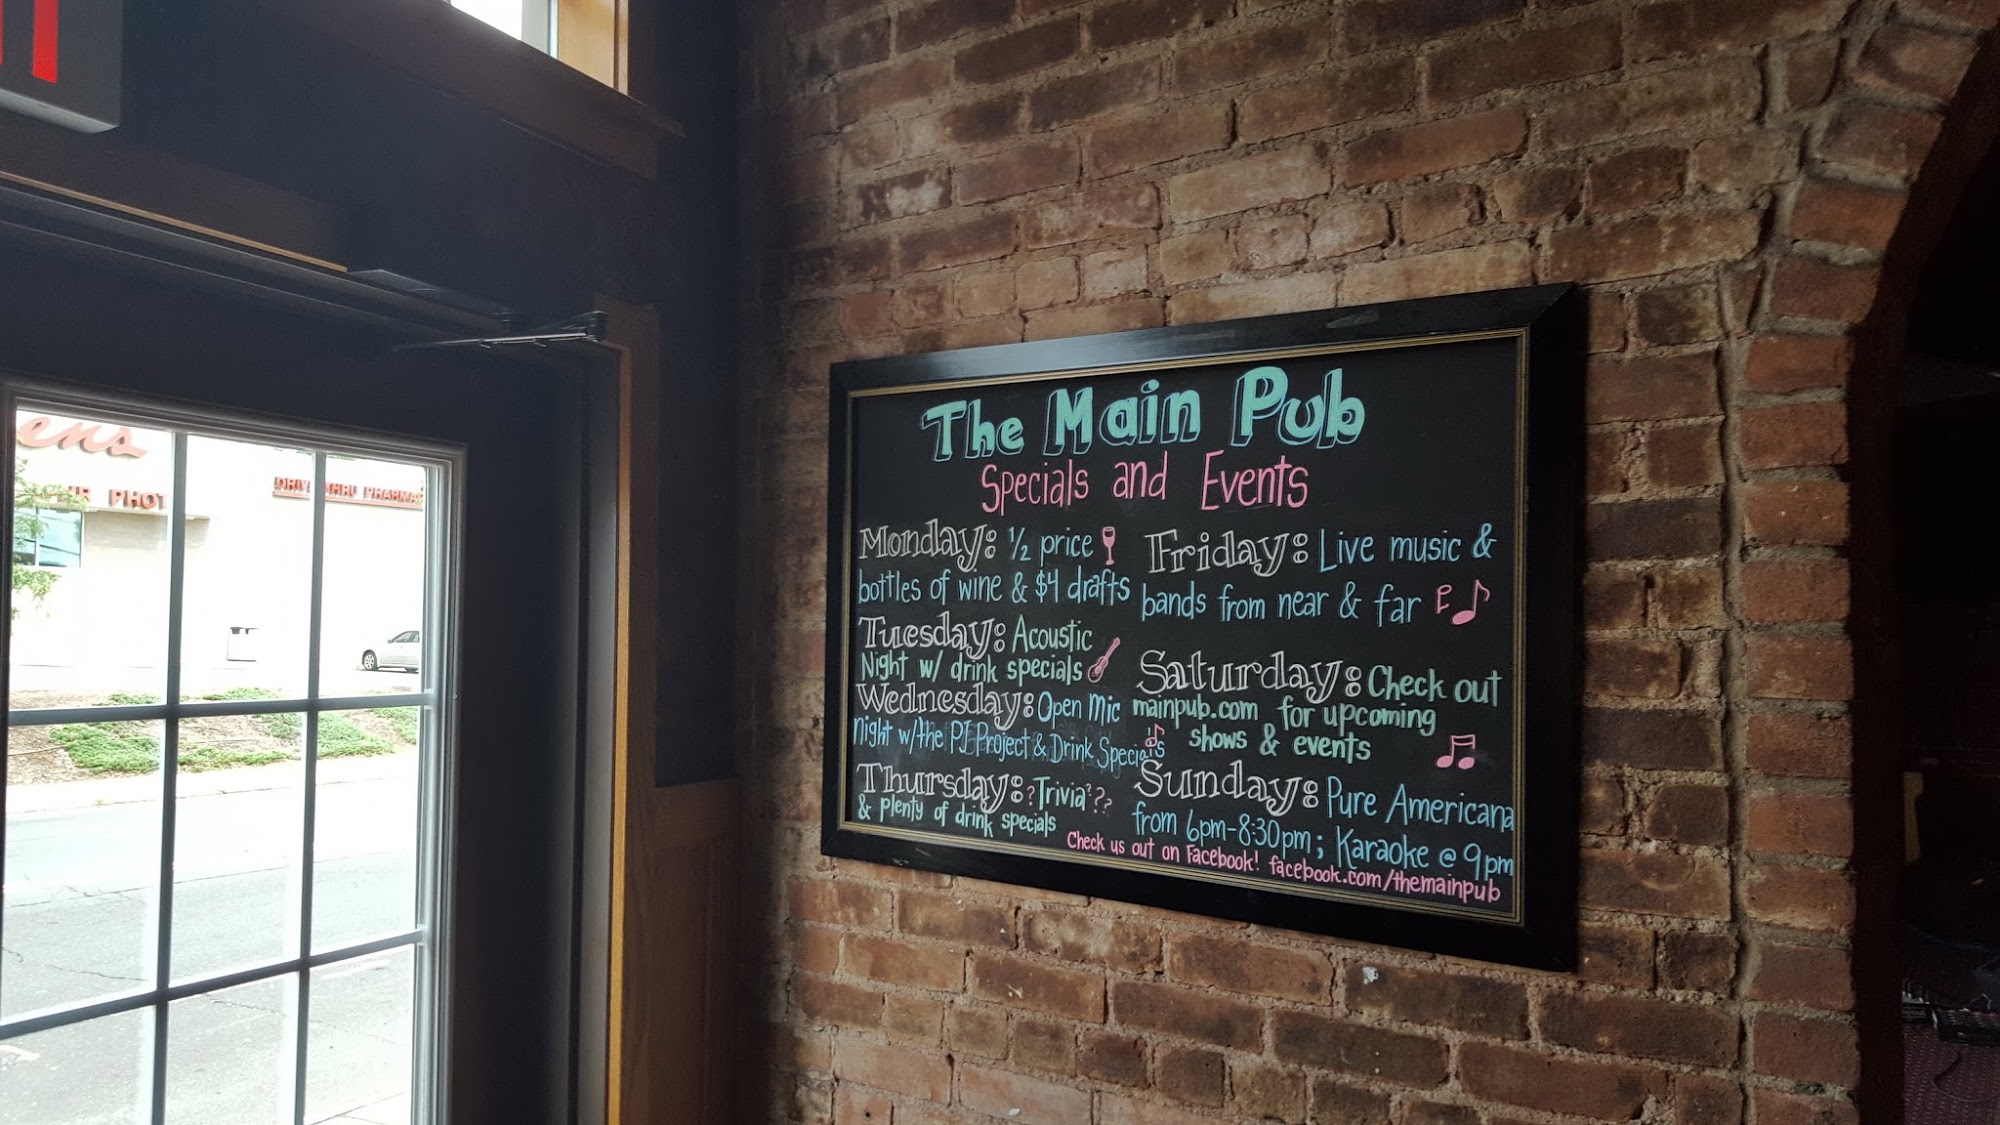 ens
PHOT
DRIVE THRU PHARMA
The Main Pub
Specials and Events
Monday: ½ price
bottles of wine & $4 drafts
Tuesday: Acoustic
Night w/ drink specials
Wednesday: Open Mic
Night w/the PJ Project & Drink Specials
Thursday: ? Trivia ???
& plenty of drink specials
Friday: Live music &
bands from near & far
Saturday: Check out
mainpub.com for upcoming
shows & events
Sunday: Pure Americana
from 6pm-8:30pm; Karaoke @ 9pm
Check us out on Facebook! facebook.com/themainpub